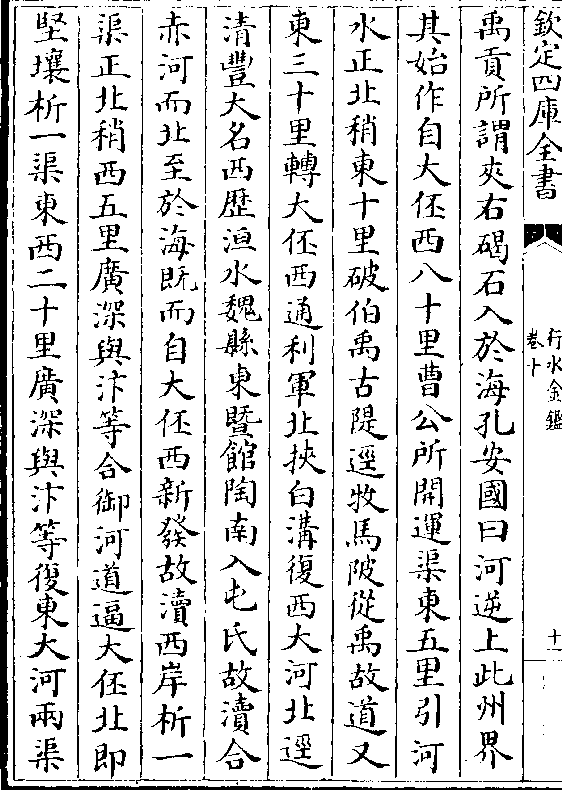 欽定四庫全書
行水金鑑
卷十
十一
禹貢所謂夾右碣石入於海孔安國曰河逆上此州界
其始作自大伾西八十里曹公所開運渠東五里引河
水正北稍東十里破伯禹古隄逕牧馬陂從禹故道又
東三十里轉大伾西通利軍北挾白溝復西大河北逕
清豐大名西歷洹水魏縣東暨館陶南入屯氏故瀆合
赤河而北至於海既而自大伾西新發故瀆西岸析一
渠正北稍西五里廣深與汴等合御河道逼大伾北即
堅壤析一渠東西二十里廣深與汴等復東大河兩渠